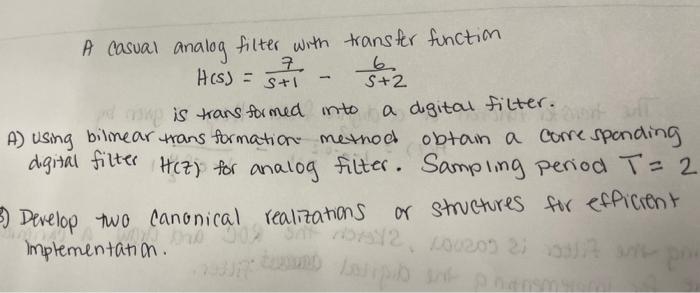 A casual analog filter with transfer function
H(s) = 7/(s+1) - 6/(s+2)
is transformed into a digital filter.
A) using bilinear transformation method obtain a corresponding
digital filter H(z) for analog filter. Sampling period T = 2
B) Develop two canonical realizations or structures for efficient
implementation.